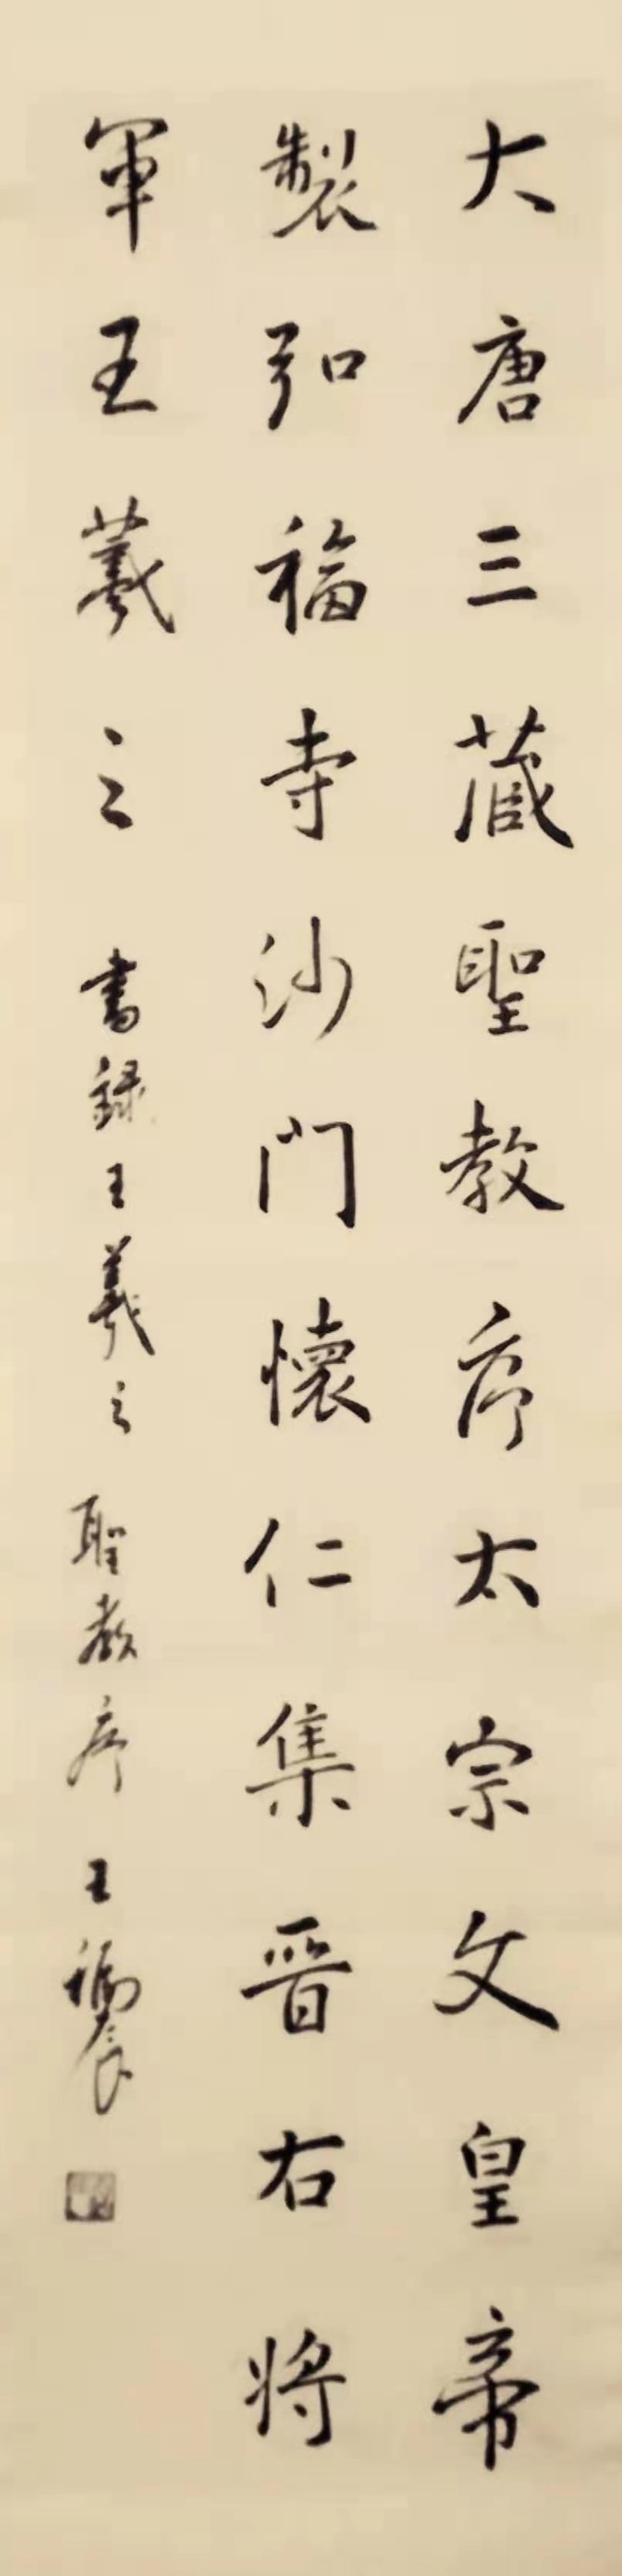 大唐三藏聖教序太宗文皇帝
製弘福寺沙門懷仁集晋右将
軍王羲之書録王羲之聖教序王